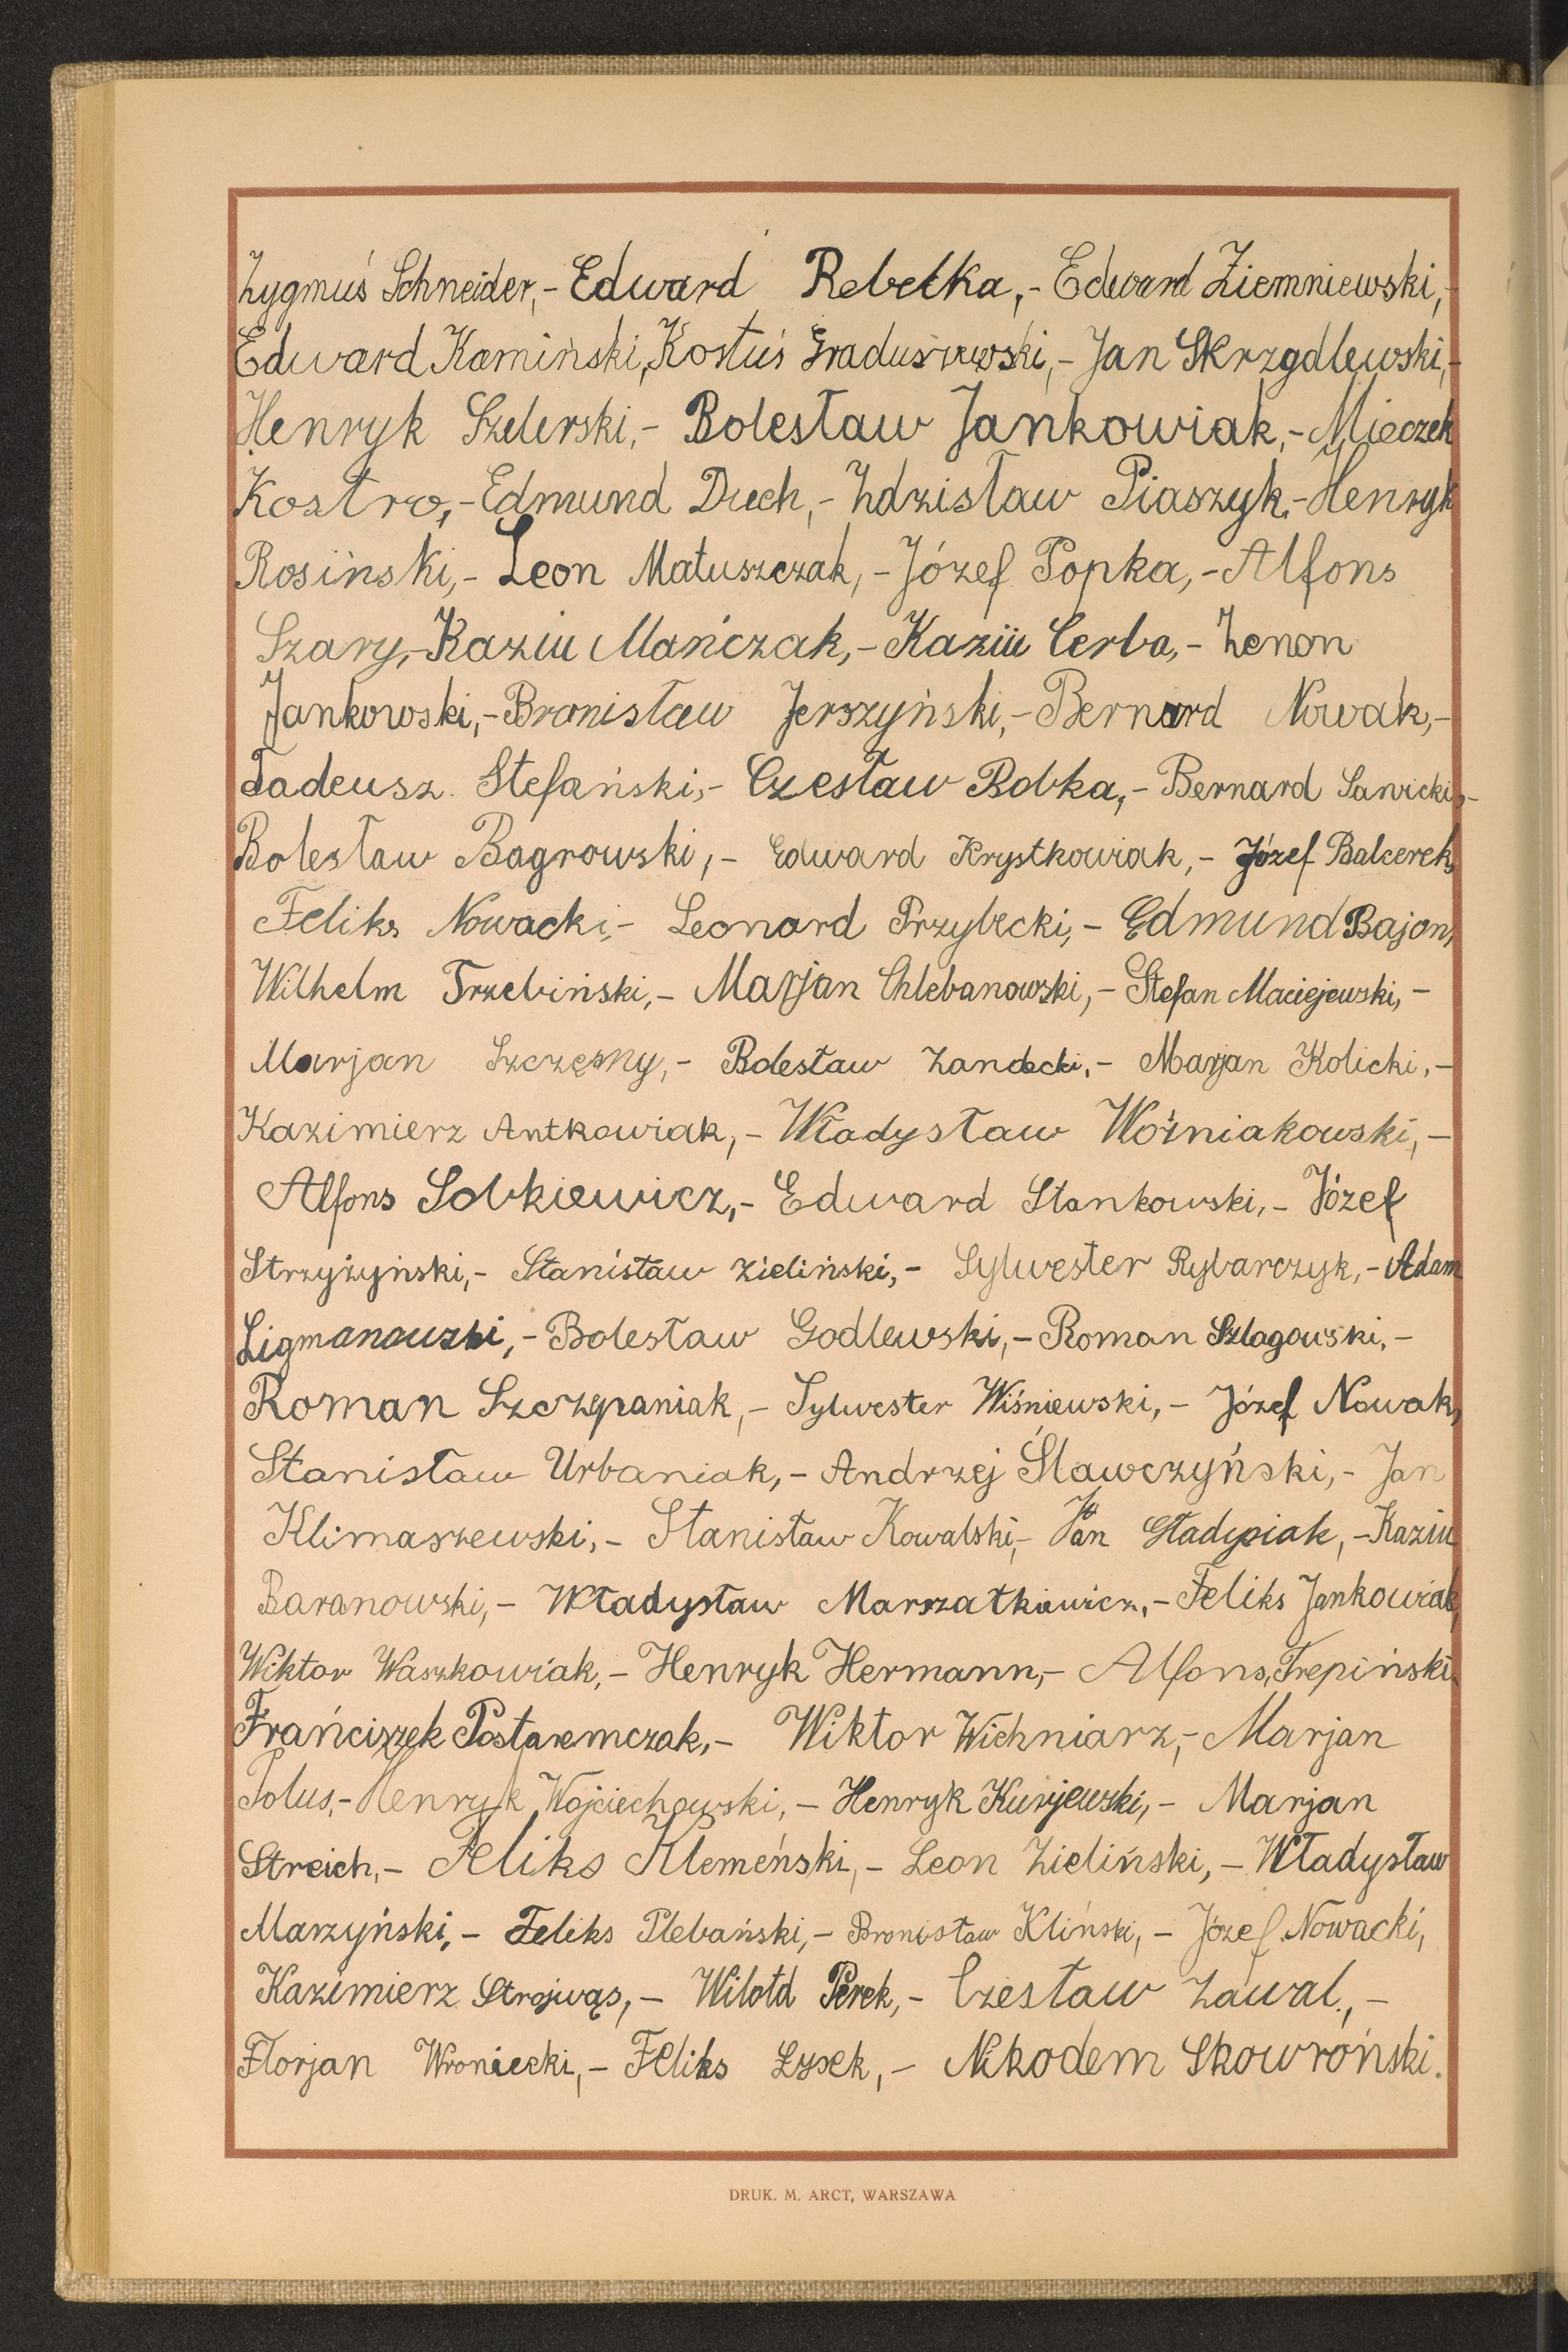 Zygmuś Schneider,- Edward Rebelka,- Edward Ziemniewski,-
Edward Kamiński, Kostuś Graduszewski,- Jan Skrzydlewski,-
Henryk Szelerski,- Bolesław Jankowiak,- Mieczek
Kostro,- Edmund Duch,- Zdzisław Piaszyk,- Henryk
Rosiński,- Leon Matuszczak,- Józef Popka,- Alfons
Szary,- Kaziu Mańczak,- Kaziu Cerba,- Zenon
Jankowski,- Bronisław Jerszyński,- Bernard Nowak,-
Tadeusz Stefański,- Czesław Bobka,- Bernard Sawicki,-
Bolesław Bagrowski,- Edward Krystkowiak,- Józef Balcerek,
Feliks Nowacki,- Leonard Przybecki,- Edmund Bajon,
Wilhelm Trzebiński,- Marjan Chlebanowski,- Stefan Maciejewski,-
Marjan Szczęsny,- Bolesław Zandecki,- Marjan Kolicki,-
Kazimierz Antkowiak,- Władysław Woźniakowski,-
Alfons Sobkiewicz,- Edward Stankowski,- Józef
Strzyżyński,- Stanisław Zieliński,- Sylwester Rybarczyk,- Adam
Ligmanowski,- Bolesław Godlewski,- Roman Szlagowski,-
Roman Szczepaniak,- Sylwester Wiśniewski,- Józef Nowak,
Stanisław Urbaniak,- Andrzej Sławczyński,- Jan
Klimaszewski,- Stanisław Kowalski,- Jan Gładysiak,- Kaziu
Baranowski,- Władysław Marszałkiewicz,- Feliks Jankowiak,
Wiktor Waszkowiak,- Henryk Hermann,- Alfons Trepiński.
Frańciszek Postaremczak,- Wiktor Wichniarz,- Marjan
Polus,- Henryk Wojciechowski,- Henryk Kurjewski,- Marjan
Streich,- Feliks Klemeński,- Leon Zieliński,- Władysław
Marzyński,- Feliks Plebański,- Bronisław Kliński,- Józef Nowacki,
Kazimierz Strojwąs,- Witold Perek,- Czesław Zawal,-
Florjan Wroniecki,- Feliks Łysek,- Nikodem Skowroński.
DRUK. M. ARCT, WARSZAWA